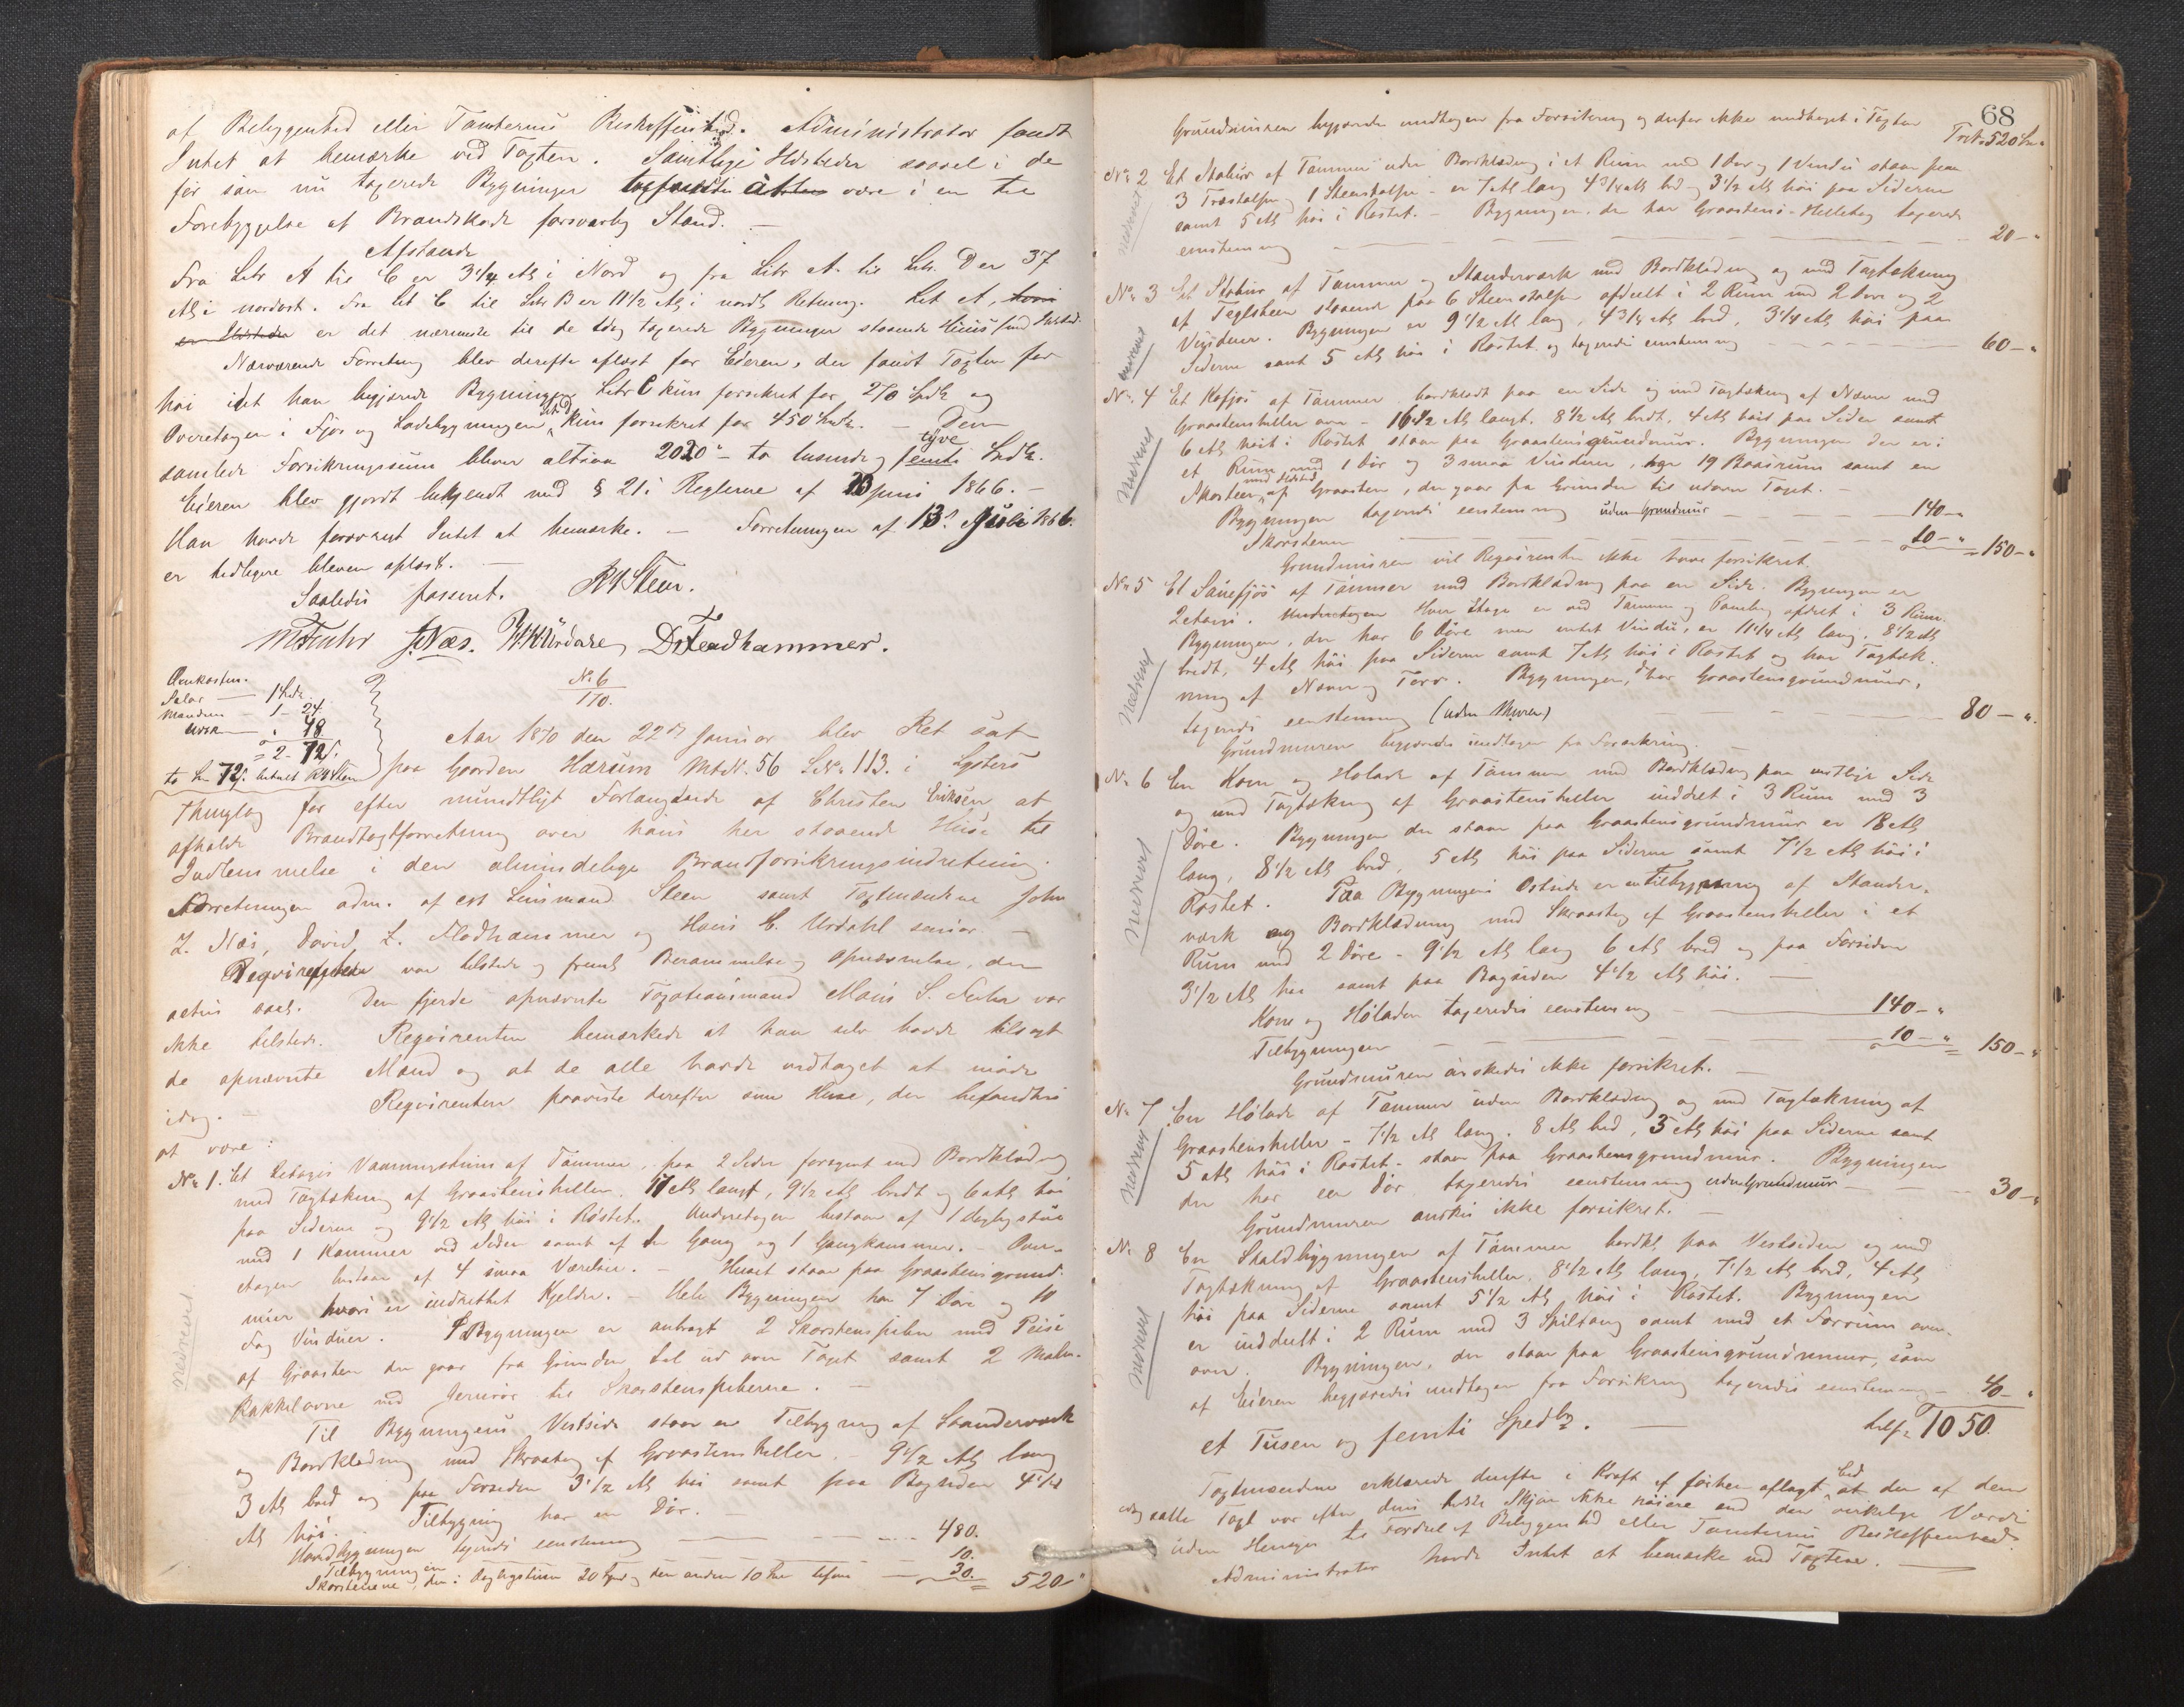 af Beliggenhed eller Tomternes Beskaffenhed. Administrator fandt
Intet at bemærke ved Taxten. Samtlige Ildsteder saavel i de
før som nu taxerede Bygninger være i en til
Forebyggelse af Brandskade forsvarlig Stand. —
Afstande
Fra Litr A til C er 3 1/4 Al i Nord og fra Litr A til Litr. D er 37
Al i nordost. Fra Lit C til Litr B er 11 1/2 Al i nordl Retning. Lit A, hvori
er Ildsteder er det nærmeste til de idag taxerede Bygninger staaende Huus med Ildsted.
Nærværende Forretning blev derefter oplæst for Eieren, der fandt Taxten for
høi idet han begjærede Bygningen Litr C kun forsikret for 270 Spd og
Overetagen i Fjøs og Ladebygningen kun forsikret for 450 Spd. — Den
samlede Forsikringssum bliver altsaa 2020 " — to tusinde og femti tyve Spd.
Eieren blev gjordt bekjendt med § 21 i Reglerne af 23 Juni 1866. —
Han havde forøvrigt Intet at bemærke. — Forretningen af 13de Juli 1866.
er tidligere bleven oplæst. —
Saaledes passeret. RSteen.
MSFuhr JNæs. HHUrdahl DsFladhammer.
Omkostn.
Salær — 1 Spd.
Mændene — 1 - 24.
Urdahl — " 48
= 2 - 72 s.
to Spd 72 s. betalt RSteen
No 6
1870.
Aar 1870 den 22de Januar blev Ret sat
paa Gaarden Hærum MtrN. 56 LNo 113. i Lysters
Thinglag for efter mundtligt Forlangende af Christen Eriksen at
afholde Brandtaxtforretning over hans her staaende Huse til
Indlemmelse i den almindelige Brandforsikringsindretning.
Forretningen adm. af cst Lensmand Steen samt Taxtmændene John
L. Næs, David L. Fladhammer og Hans H. Urdahl senior. —
Reqvirenten var tilstede og freml Berammelse og Opnævnelse, der
actis saal. Den fjerde opnævnte Taxationsmand Mons S. Fuhr var
ikke tilstede. Reqvirenten bemærkede at han selv havde tilsagt
de opnævnte Mænd og at de alle havde vedtaget at møde
idag. — Reqvirenten paaviste derefter sine Huse, der befandtes
at være:
No 1. Et 2etages Vaaningshuus af Tømmer, paa 2 Sider forsynet med Bordklædning
med Tagtækning af Graastensheller. 17 Al langt, 9 1/2 Al bredt og 6 Al høi
paa Siderne og 9 1/2 Al høi i Røstet. Underetagen bestaar af 1 Dagligstue
med 1 Kammer ved Siden samt af en Gang og 1 Gangkammer. — Over-
etagen bestaar af 4 smaa Værelser. — Huset staar paa Graastensgrund-
muur hvori er indrettet Kjelder. — Hele Bygningen har 7 Døre og 10
Fag Vinduer. I Bygningen er anbragt 2 Skorstenspiber med Peise
af Graasten der gaar fra Grunden til ud over Taget samt 2 Malm-
kakkelovne med Jernrør til Skorstenspiberne. —
Til Bygningens Vestside staar en Tilbygning af Standerværk
og Bordklædning med Skraatag af Graastensheller. — 9 1/2 Al lang
3 Al bred og paa Forsiden 3 1/2 Al høi samt paa Bagsiden 4 1/2
Al høi. Tilbygning har en Dør. —
Hovedbygningen taxeredes eenstemmig — 480.
Tilbygningen 10.
Skorstenene, den i Dagligstuen 20 Spd og den anden 10 Spd — 30. = 520 "
nedrevet
68
Grundmuren begjæredes undtagen fra Forsikring og derfor ikke medtaget i Taxten
Trsp. 520 Spd "
No 2 Et Stabur af Tømmer uden Bordklædning i et Rum med 1 Dør og 1 Vindue staar paa
3 Træstolper og 1 Steenstolpe — er 7 Al lang 4 3/4 Al bred og 3 1/2 Al høi paa Siderne
samt 5 Al høi i Røstet. — Bygningen, der har Graastens-Helletag taxeredes
eenstemmig — 20 — "
nedrevet
No 3 Et Stabur af Tømmer og Standerværk med Bordklædning og med Tagtækning
af Teglsteen staaende paa 6 Steenstolper afdeelt i 2 Rum med 2 Døre og 2
Vinduer. Bygningen er 9 1/2 Al lang, 4 3/4 Al bred, 3 1/4 Al høi paa
Siderne samt 5 Al høi i Røstet og taxeredes eenstemmig — 60 — "
nedrevet
No. 4 Et Kofjøs af Tømmer bordklædt paa en Side og med Tagtækning af Næver med
Graastensheller over — 16 1/2 Al langt. 8 1/2 Al bredt, 4 Al høit paa Siden samt
6 Al høit i Røstet staar paa Graastensgrundmuur. Bygningen der er i
et Rum med 1 Dør og 3 smaa Vinduer, har 19 Baasrum samt en
Skorsteen med Ildsted af Graasteen, der gaar fra Grunden til udover Taget. —
Bygningen taxeredes eenstemmig uden Grundmur — 140 — "
Skorstenen — 10 — " = 150 — "
Grundmuren vil Reqvirenten ikke have forsikret.
nedrevet
No 5 Et Sauefjøs af Tømmer med Bordklædning paa en Side. Bygningen er
2etages. Hver Etage er ved Tømmer afdelt i 3 Rum.
Bygningen, der har 6 Døre men intet Vindue, er 11 1/4 Al lang, 8 1/2 Al
bredt, 4 Al høi paa Siderne samt 7 Al høi i Røstet og har Tagtæk-
ning af Næver og Torv. Bygningen, der har Graastensgrundmuur,
taxeredes eenstemmig (uden Muren) — 80 — "
Grundmuren begjæredes undtagen fra Forsikring. —
Nedrevet
No 6 En Korn og Hølade af Tømmer med Bordklædning paa vestlige Side
og med Tagtækning af Graastensheller inddelt i 3 Rum med 3
Døre. Bygningen der staar paa Graastensgrundmuur er 18 Al
lang, 8 1/2 Al bred, 5 Al høi paa Siderne samt 7 1/2 Al høi i
Røstet. Paa Bygningens Ostside er en Tilbygning af Stander-
værk og Bordklædning med Skraatag af Graastensheller i et
Rum med 2 Døre — 9 1/2 Al lang 6 Al bred og paa Forsiden
3 1/2 Al høi samt paa Bagsiden 4 1/2 Al høi. —
Korn og Høladen taxeredes eenstemmig — 140 — "
Tilbygningen — 10 — " = 150 — "
Grundmuren ønskedes ikke forsikret. —
nedrevet
No 7 En Hølade af Tømmer uden Bordklædning og med Tagtækning af
Graastensheller — 7 1/2 Al lang. 8 Al bred, 3 Al høi paa Siderne samt
5 Al høi i Røstet — staar paa Graastensgrundmuur. Bygningen
der har een Dør taxeredes eenstemmig uden Grundmuur — 30 — "
Grundmuren ønskes ikke forsikret. —
nedrevet
No 8 En Staldbygningen af Tømmer bordkl. paa Vestsiden og med
Tagtækning af Graastensheller. 8 1/2 Al lang, 7 1/2 Al bred, 4 Al
høi paa Siderne samt 5 1/2 Al høi i Røstet. Bygningen
er inddeelt i 2 Rum med 3 Spiltoug samt med et Forrum oven-
over. Bygningen, der staar paa Graastensgrundmuur, som
af Eieren begjæredes undtagen fra Forsikring taxeredes eenstemmig — 40 — "
et Tusen og femti Spedlr. — tils. 1050.
nedrevet
Taxtmændene erklærede derefter i Kraft af forhen aflagt Eed at den af dem
idag satte Taxt var efter deres bedste Skjøn ikke høiere end den virkelige Værdi
uden Hensyn til Fordeel af Beliggenhed eller Tomternes Beskaffenhed.
Administrator havde Intet at bemærke ved Taxten. —